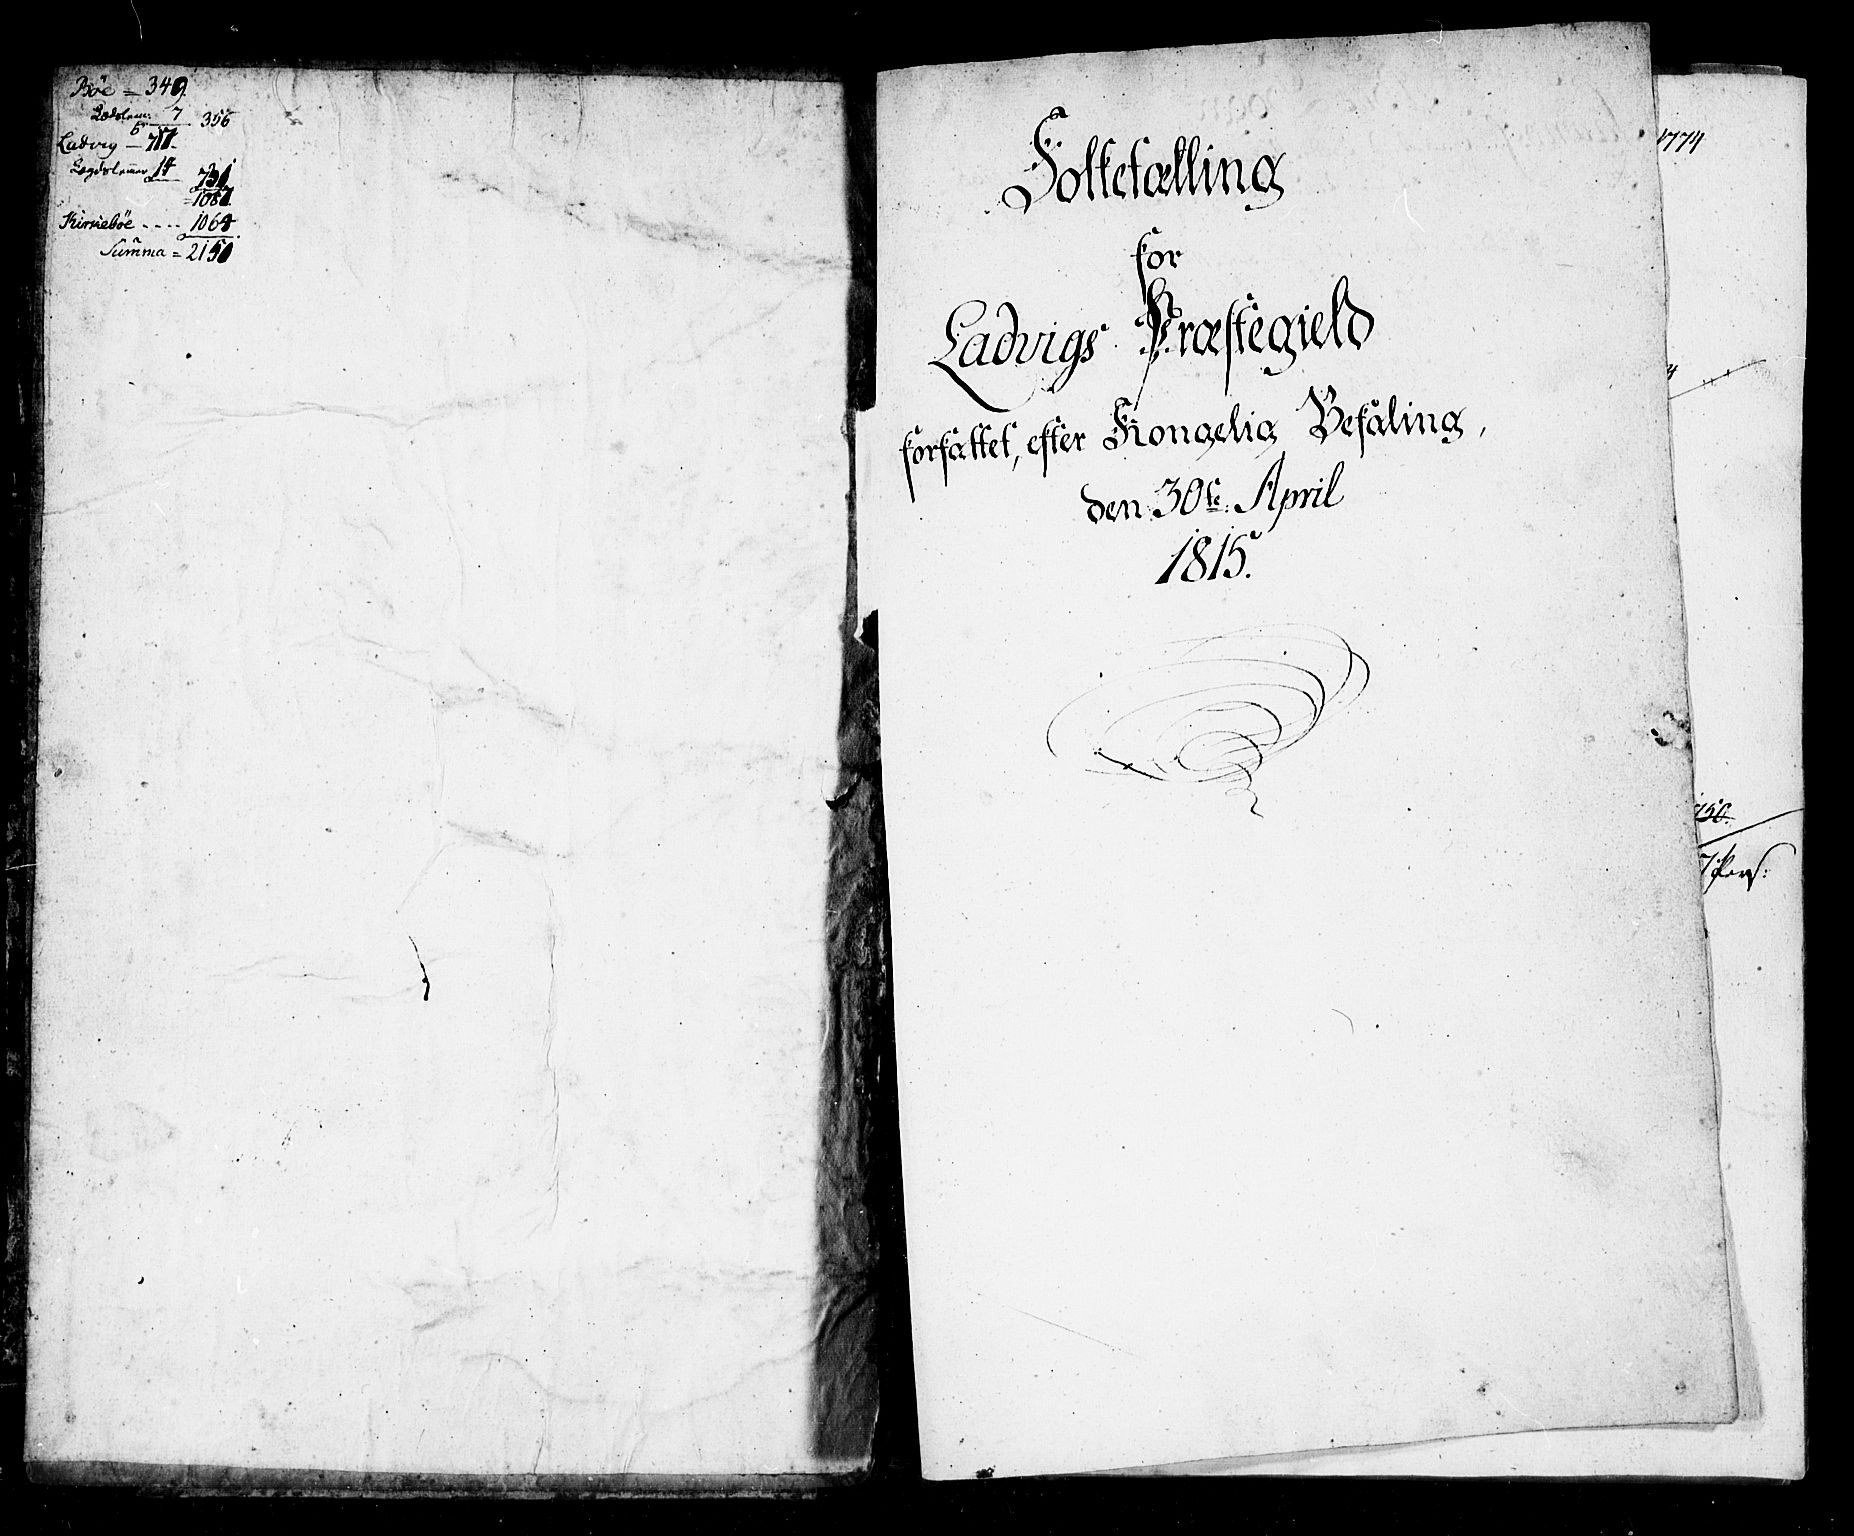 Böe = 349.
Lægdslem: 7 356
Ladvig — 717.
Lægdslemmer 14 731
= 1087
Kirkeböe .... 1064
Summa = 2151
Folketælling
for
Ladvigs Præstegield
forfattet, efter Kongelig Befaling,
den 30te: April
1815.
1774
150.
7 Pers: